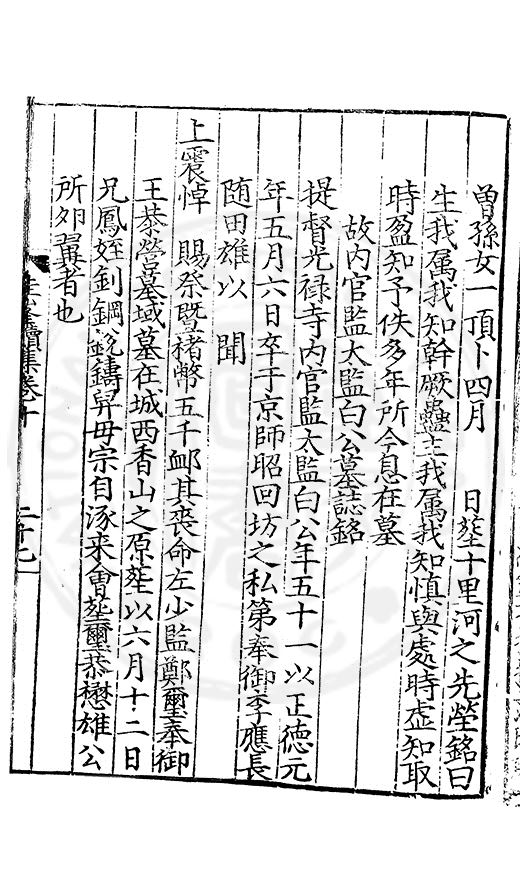 曽孫女一頂卜四月　日塟十里河之先塋銘曰
生我属我知幹厥蠱主我属我知慎與處時虚知取
時盈知予佚多年所今息在墓
故内官監太監白公墓誌銘
提督光禄寺内官監太監白公年五十一以正德元
年五月六日卒于京師昭回坊之私第奉御李應長
随田雄以　聞
上震悼　賜祭暨楮幣五千䘏其丧命左少監鄭璽奉御
王恭營墓域墓在城西香山之原塟以六月十二日
兄鳳姪釗鋼鋭鑄舁母宗自涿来會塟璽恭懋雄公
所卵翼者也
續集卷十
二十七